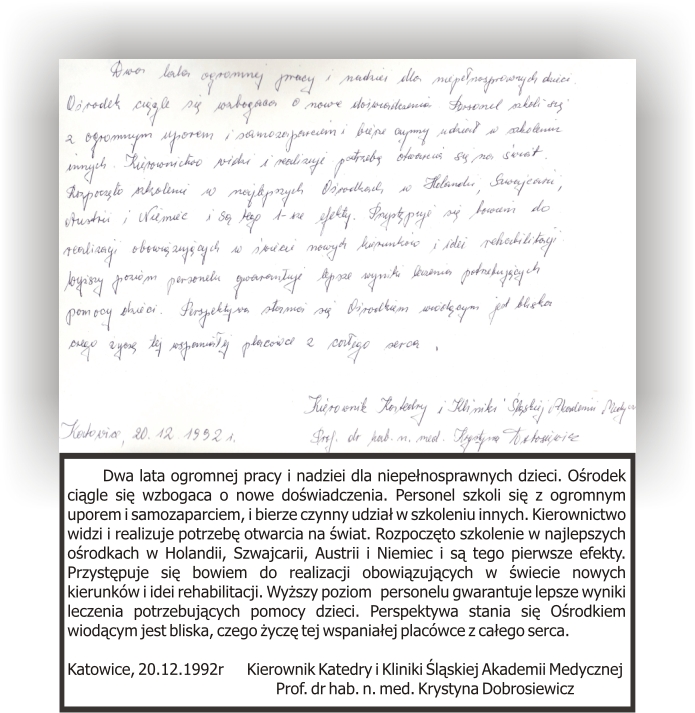 Dwa lata ogromnej pracy i nadziei dla niepełnosprawnych dzieci.
Ośrodek ciągle się wzbogaca o nowe doświadczenia. Personel szkoli się
z ogromnym uporem i samozaparciem i bierze czynny udział w szkoleniu
innych. Kierownictwo widzi i realizuje potrzebę otwarcia się na świat.
Rozpoczęto szkolenie w najlepszych Ośrodkach w Holandii, Szwajcarii,
Austrii i Niemiec i są tego 1-sze efekty. Przystępuje się bowiem do
realizacji obowiązujących w świecie nowych kierunków i idei rehabilitacji
Wyższy poziom personelu gwarantuje lepsze wyniki leczenia potrzebujących
pomocy dzieci. Perspektywa stania się Ośrodkiem wiodącym jest bliska
czego życzę tej wspaniałej placówce z całego serca.
Kierownik Katedry i Kliniki Śląskiej Akademii Medyczn
Katowice, 20.12.1992 r. Prof. dr hab. n. med. Krystyna Dobrosiewicz
Dwa lata ogromnej pracy i nadziei dla niepełnosprawnych dzieci. Ośrodek
ciągle się wzbogaca o nowe doświadczenia. Personel szkoli się z ogromnym
uporem i samozaparciem, i bierze czynny udział w szkoleniu innych. Kierownictwo
widzi i realizuje potrzebę otwarcia na świat. Rozpoczęto szkolenie w najlepszych
ośrodkach w Holandii, Szwajcarii, Austrii i Niemiec i są tego pierwsze efekty.
Przystępuje się bowiem do realizacji obowiązujących w świecie nowych
kierunków i idei rehabilitacji. Wyższy poziom personelu gwarantuje lepsze wyniki
leczenia potrzebujących pomocy dzieci. Perspektywa stania się Ośrodkiem
wiodącym jest bliska, czego życzę tej wspaniałej placówce z całego serca.
Katowice, 20.12.1992r Kierownik Katedry i Kliniki Śląskiej Akademii Medycznej
Prof. dr hab. n. med. Krystyna Dobrosiewicz